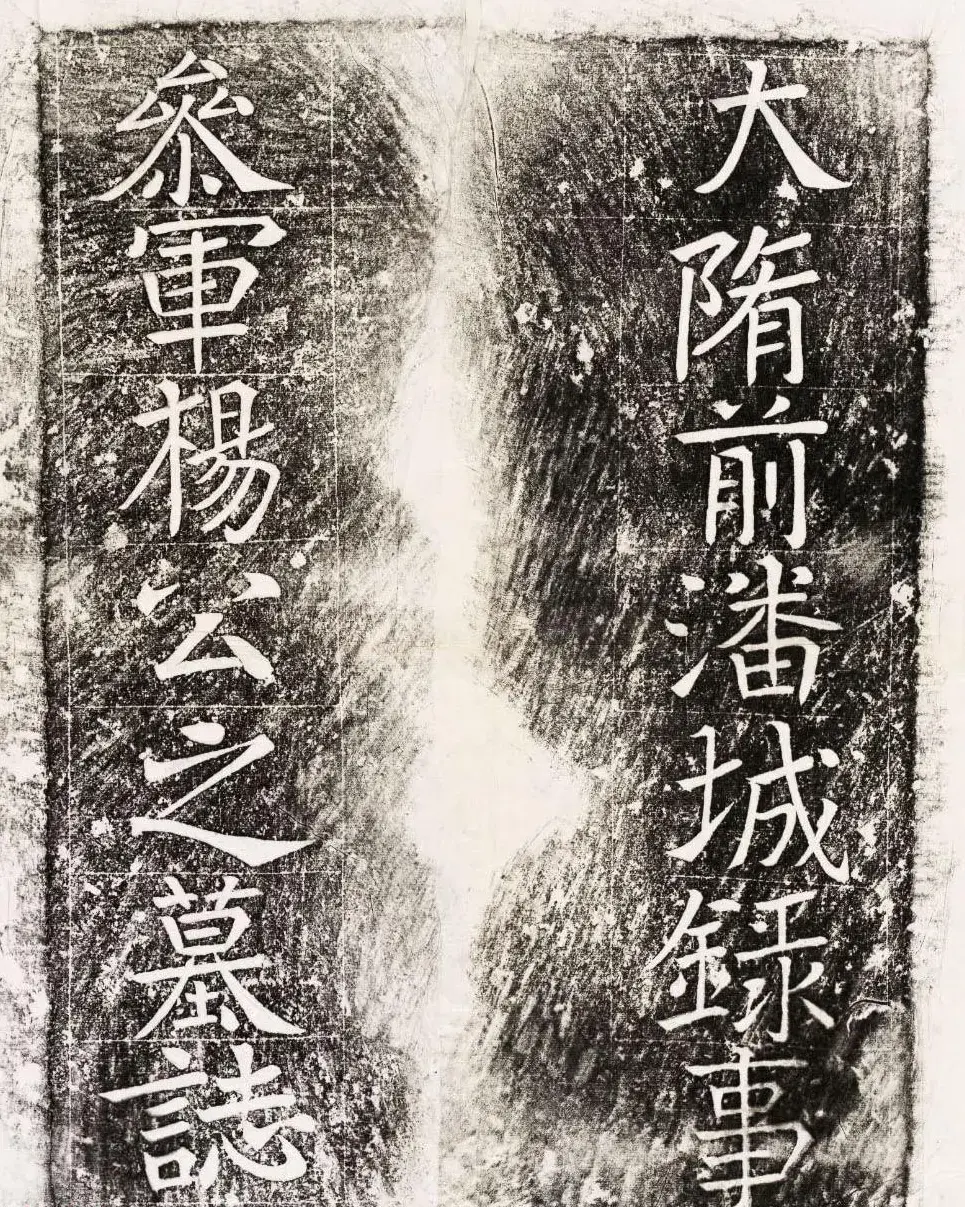 大隋前潘城録事
參軍楊公之墓誌